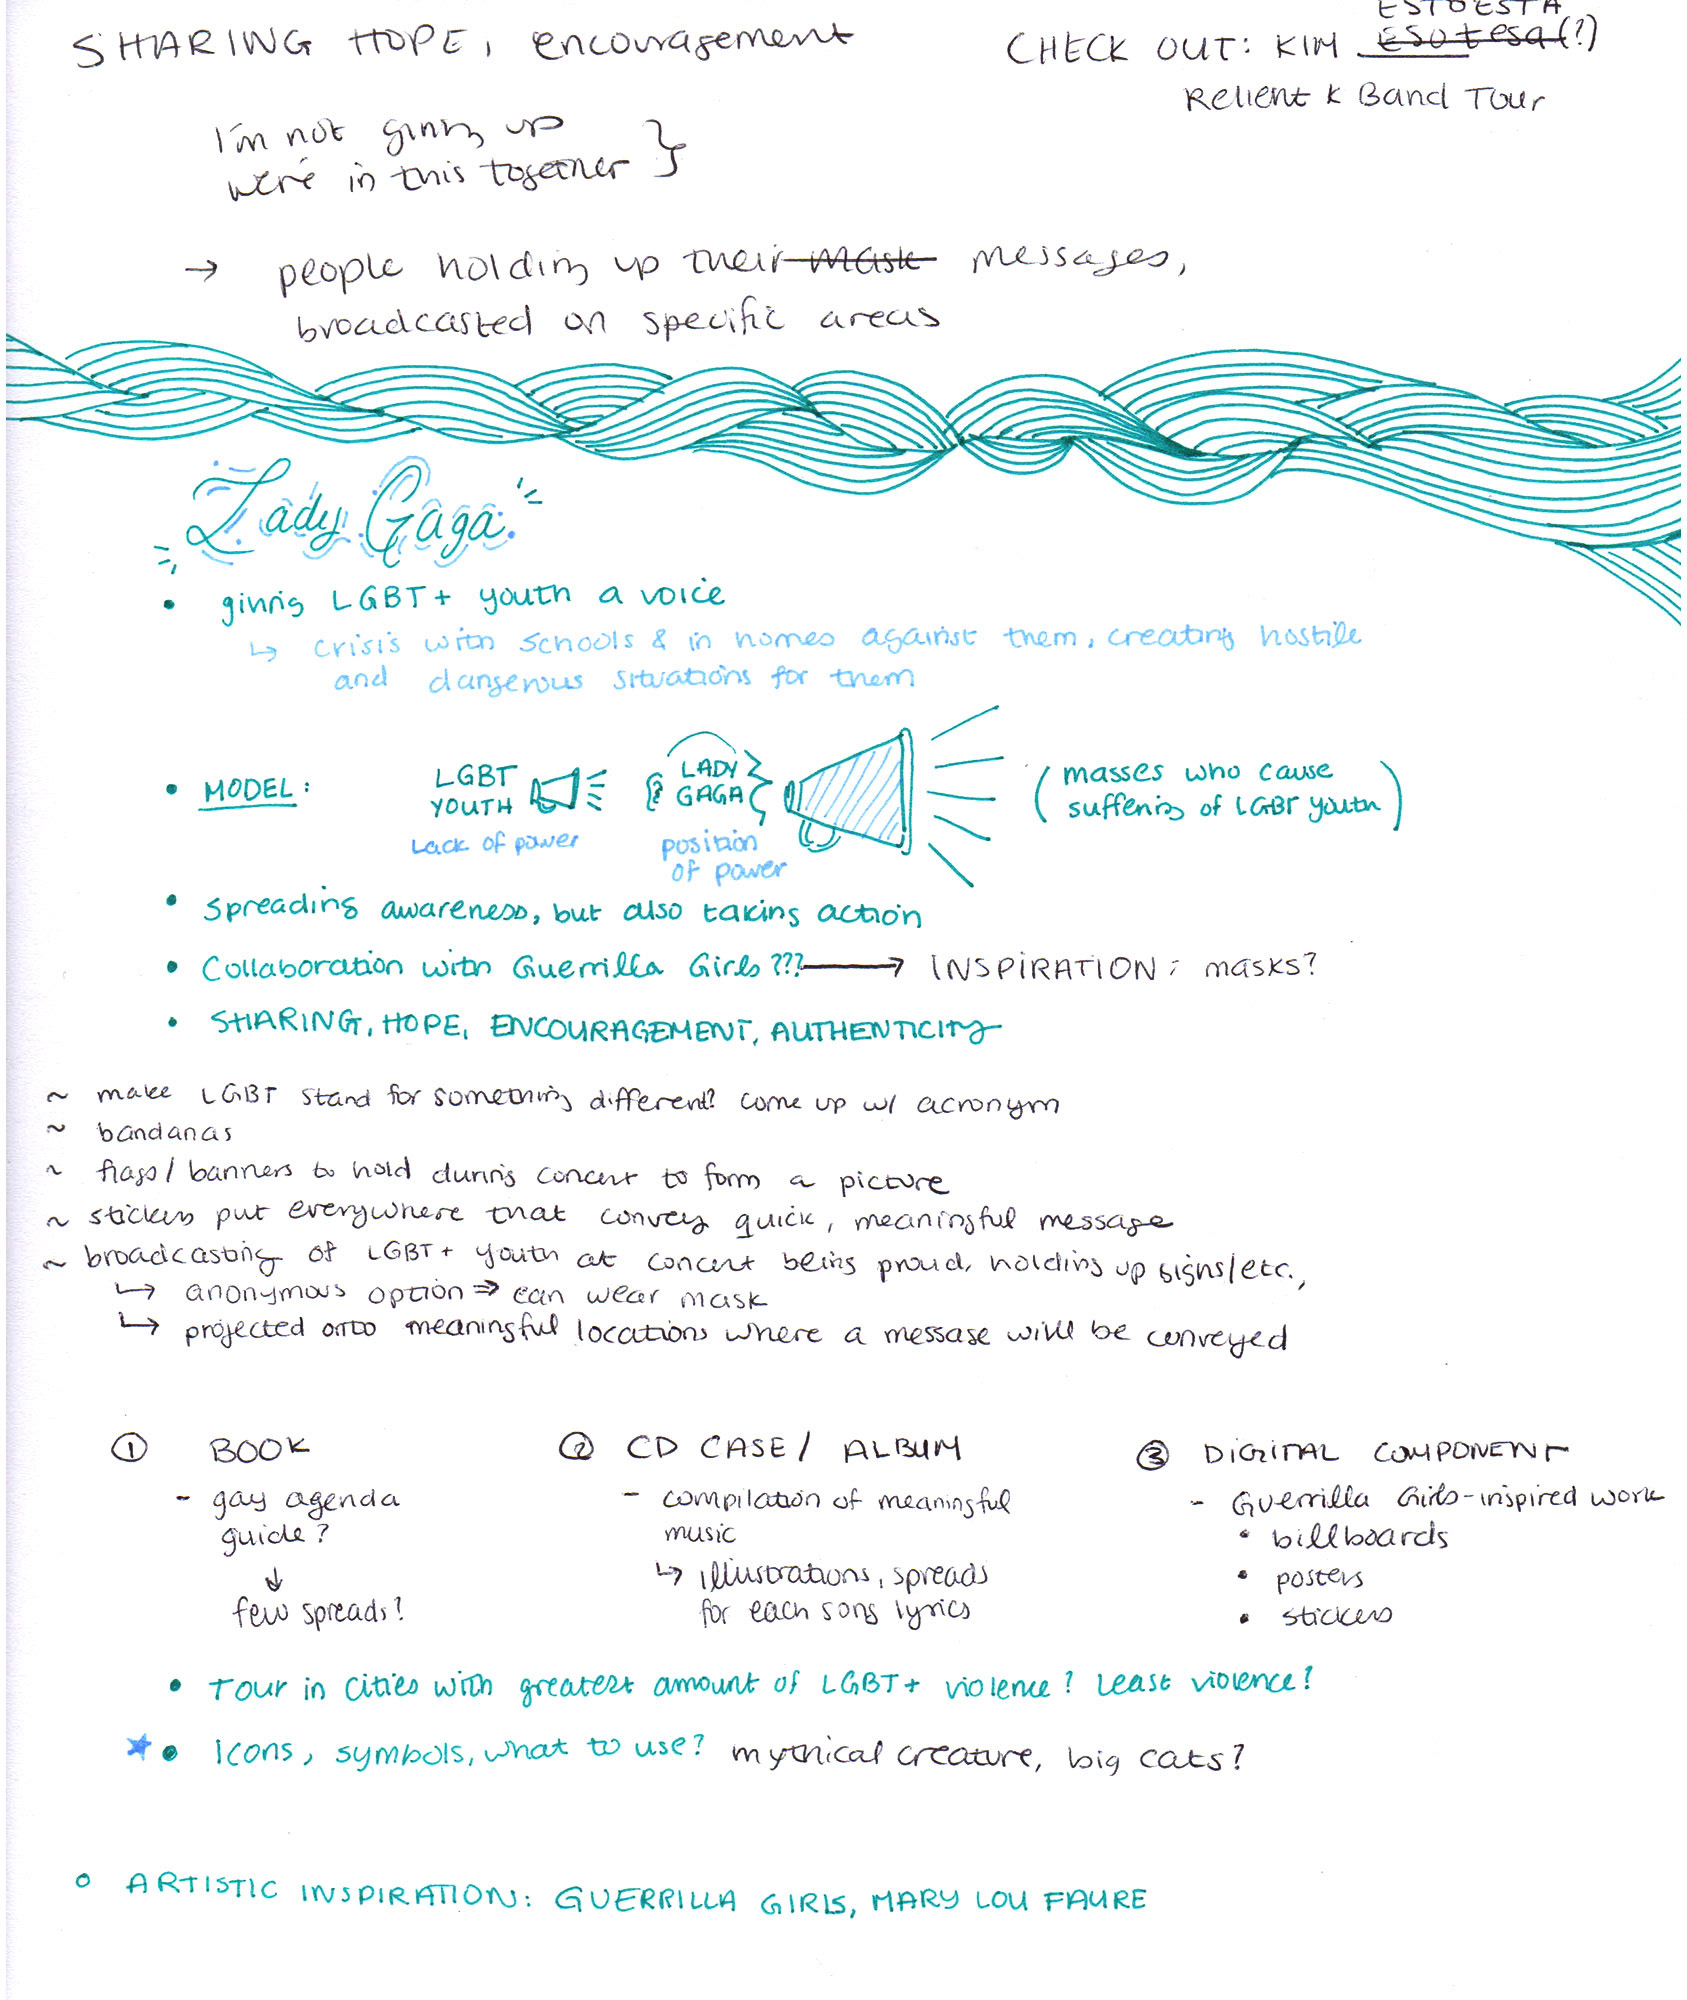 SHARING HOPE, encouragement
ESTOESTA
CHECK OUT: KIM Esotesa(?)
Relient K Band Tour
I'm not giving up
we're in this together
→ people holding up their mask messages,
broadcasted on specific areas
Lady Gaga
• giving LGBT+ youth a voice
↳ crisis with schools & in homes against them, creating hostile
and dangerous situations for them
• MODEL:
LGBT
YOUTH
Lack of power
LADY
GAGA
position
of power
(masses who cause
suffering of LGBT youth)
• spreading awareness, but also taking action
• Collaboration with Guerrilla Girls??? → INSPIRATION: masks?
• SHARING, HOPE, ENCOURAGEMENT, AUTHENTICITY
~ make LGBT stand for something different? come up w/ acronym
~ bandanas
~ flags/banners to hold during concert to form a picture
~ stickers put everywhere that convey quick, meaningful message
~ broadcasting of LGBT+ youth at concert being proud, holding up signs/etc.,
↳ anonymous option ⇒ can wear mask
↳ projected onto meaningful locations where a message will be conveyed
① BOOK
- gay agenda
guide?
↓
few spreads?
② CD CASE/ ALBUM
- compilation of meaningful
music
↳ illustrations, spreads
for each song lyrics
③ DIGITAL COMPONENT
- Guerrilla Girls-inspired work
• billboards
• posters
• stickers
• Tour in cities with greatest amount of LGBT+ violence? Least violence?
★ • Icons, symbols, what to use? mythical creature, big cats?
○ ARTISTIC INSPIRATION: GUERRILLA GIRLS, MARY LOU FAURE